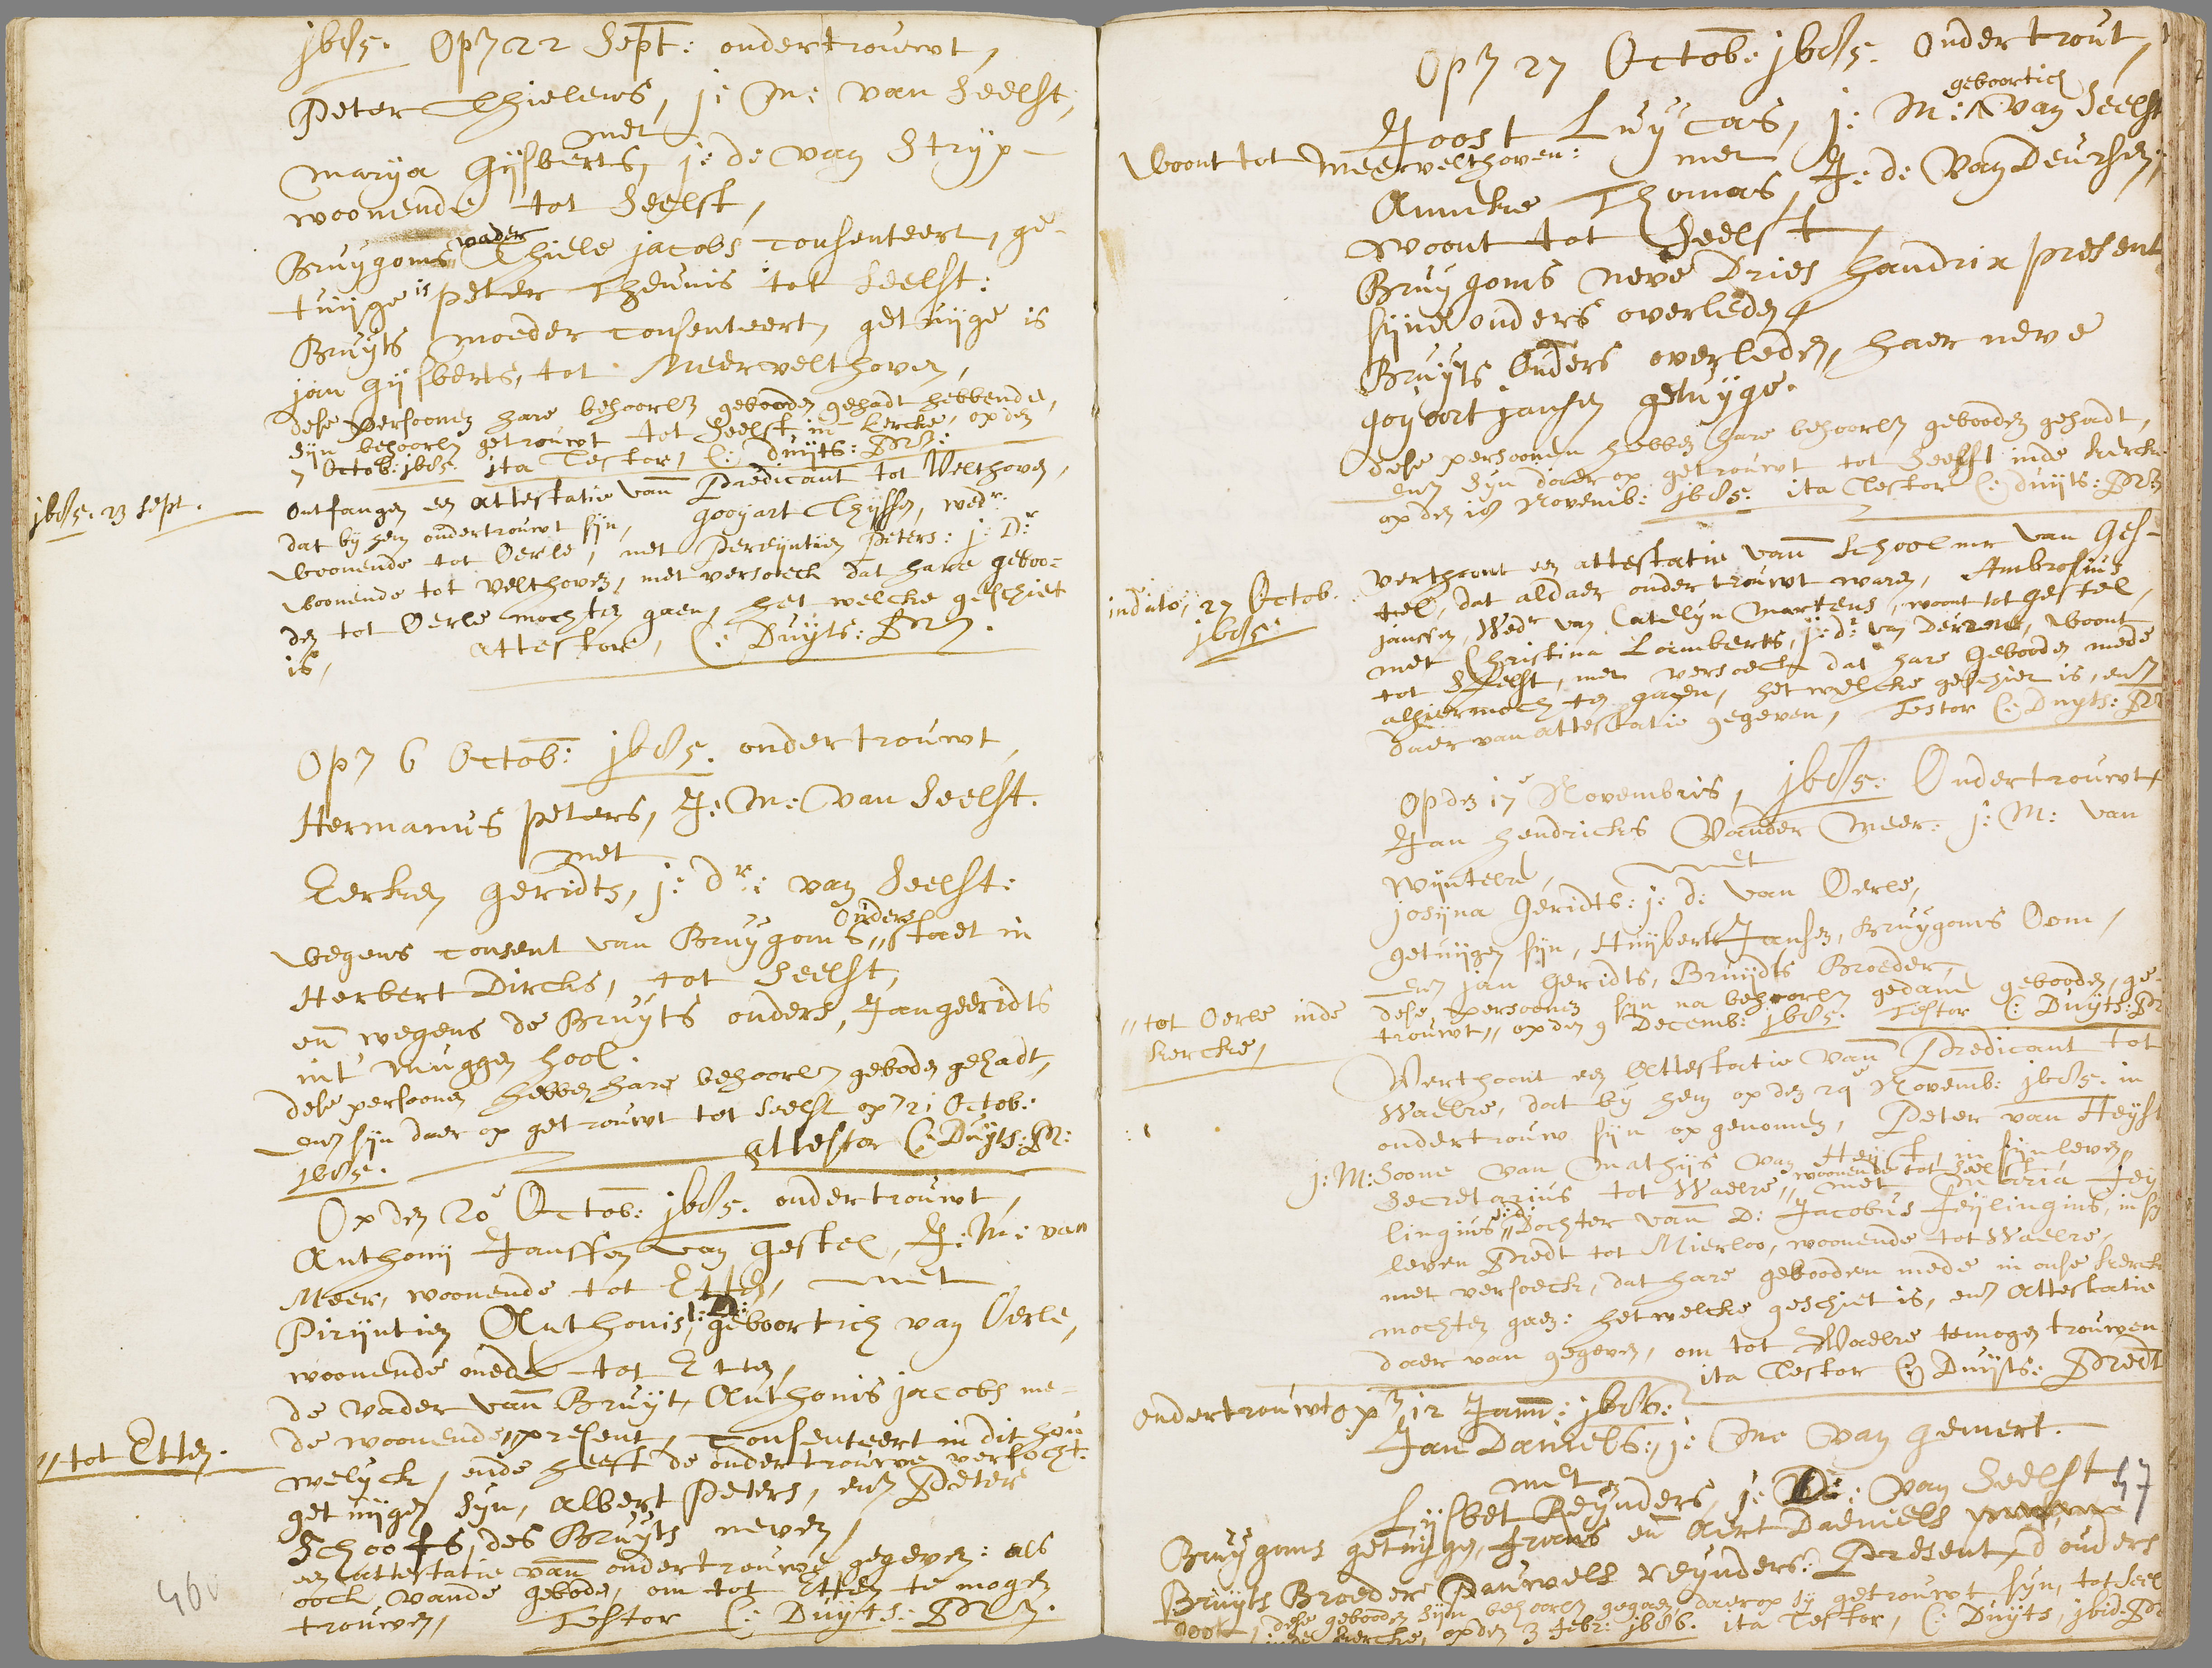 j685. Op 22 Sept: ondertrouwt,
Peter Thielens, j: M: van Seelst,
met
Marya Gijsberts, j: d: van Stryp
woonende tot Seelst,
Bruygoms vader Thiele jacobs consenteert, ge-
tuijge is peter Theunis tot Seelst:
Bruyts moeder consenteert, getuijge is
jan Gijsberts, tot Meervelthoven,
dese persoonen hare behoorl: gebooden gehadt hebbende,
sijn behoorl: getrouwt tot Seelst in kercke, op den
7 Octob: j685. ita Testor, C: Duijts: Pr:
j685. 23 sept.
Ontfangen een attestatie van Predicant tot Velthoven,
dat bij hem ondertrouwt sijn, Gooyart Thijssen, wedr:
woonende tot Oerle, met Pereyntien Peters: j: Dr:
woonende tot Velthoven, met versoeck dat hare geboo-
den tot Oerle mochten gaen, het welcke geschiet
is, attestor, C: Duyts: Pr:
Op 6 Octob: j685. ondertrouwt,
Hermanus Peters, J: M: van Seelst.
met
Eerken Geridts, j: dr: van Seelst:
wegens consent van Bruygoms Ouders staet in
Herbert Dircks, tot Seelst,
en wegens de Bruyts ouders, Jan geeridts
int muggen hool.
dese persoonen hebben hare behoorl: geboden gehadt,
ende sijn daer op getrouwt tot Seelst op 21 Octob:
j685. attestor C: Duyts: Pr:
Op den 20e Octob: j685. ondertrouwt,
Anthonij Janssen van Gestel, J: M: van
Meer, woonende tot Etten, met
Pirijntien Anthonis, j: D: geboortich van Oerle,
woonende mede tot Etten,
de vader van Bruyt, Anthonis jacobs me-
de woonende, present, consenteert in dit hou
welyck, ende heeft de ondertrouwe versocht.
"tot Etten.
getuijgen syn, Albert Peters, ende Peter
Schoofs, des Bruyts neven,
een attestatie van ondertrouwe gegeven: als
oock vande gebode, om tot Etten te mogen
trouwen, Testor C: Duyts: Pr:
460
Op 27 Octob: j685. Ondertrout,
Joost Luycas, j: M: geboortich van Seelst
woont tot Meervelthoven: met
Anneke Thomas, J: d: van Deursen,
woont tot Seelst
Bruygoms neve Dries Handrix present
sijne ouders overleden
Bruyts Ouders overleden, haer neve
Goyoort jansen getuyge.
dese persoonen hebben hare behoorl: gebooden gehadt,
ende syn daer op getrouwt tot Seelst inde kercke
op den 18 Novemb: j685. ita Testor C: Duijts: Pr:
in dato, 27 Octob.
j685:
Verthoont een attestatie van schoolmr van Ges-
tel, dat aldaer ondertrouwt waren, Ambrosius
janssen, Wedr van Catelyn Martens, woont tot Gestel,
met Christina Lamberts, j: dr van Deurne, woont
tot Seelst, met versoeck dat hare Gebooden mede
alhier mochten gaen, het welcke geschiet is, ende
daer van attestatie gegeven, Testor C: Duyts: Pr:
Op den 17e Novembris, j685: Ondertrouwt,
Jan Hendricks Vander Meer: j: M: van
Wyntelre, met
josijna Geridts: j: d: van Oerle,
getuijgen sijn, Huybert Jansen, Bruygoms Oom,
ende jan Geridts, Bruijdts Broeder,
dese persoenen sijn na behoorl: gedaene gebooden, ge-
trouwt "op den 9 Decemb: j685. Testor C: Duyts: Pr
"tot Oerle inde
kercke,
Verthoont een Attestatie van Predicant tot
Waelre, dat by hem op den 29e Novemb: j685. in
ondertrouw sijn opgenomen, Peter van Heyst
j: M: Soone van Mathijs van Heyst, in sijn leven
Secretarius tot Waelre, woonende tot Seelst met Maria Jey
lingius, j: d: Dochter van D: Jacobus Jeylingius, in sy
leven Predt tot Mierloo, woonende tot Waelre,
met versoeck, dat hare gebooden mede in onse kerck
mochten gaen: het welcke geschiet is, ende Attestatie
daer van gegeven, om tot Waelre te mogen trouwen
ita Testor C: Duyts: Predt
ondertrouwt op 12 Janu: j686:
Jan Daniels: j: Me van Gemert.
met
Lijsbet Reynders, j: D: van Seelst
57
Bruygoms getuijge, Frans en Aert Daniels
Bruyts Broeder Pauwels Reynders: Present, d ouders
doot, dese gebooden sijn behoorl: gegaen daer op sy getrouwt syn, tot Seel
inde kercke, op den 3 Febr: j686. ita Testor, C: Duyts, ibid: Pr